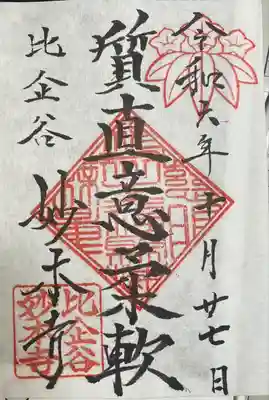 令和六年十一月廿七日
質直意柔軟
比企谷
妙本寺
比企谷
妙本寺